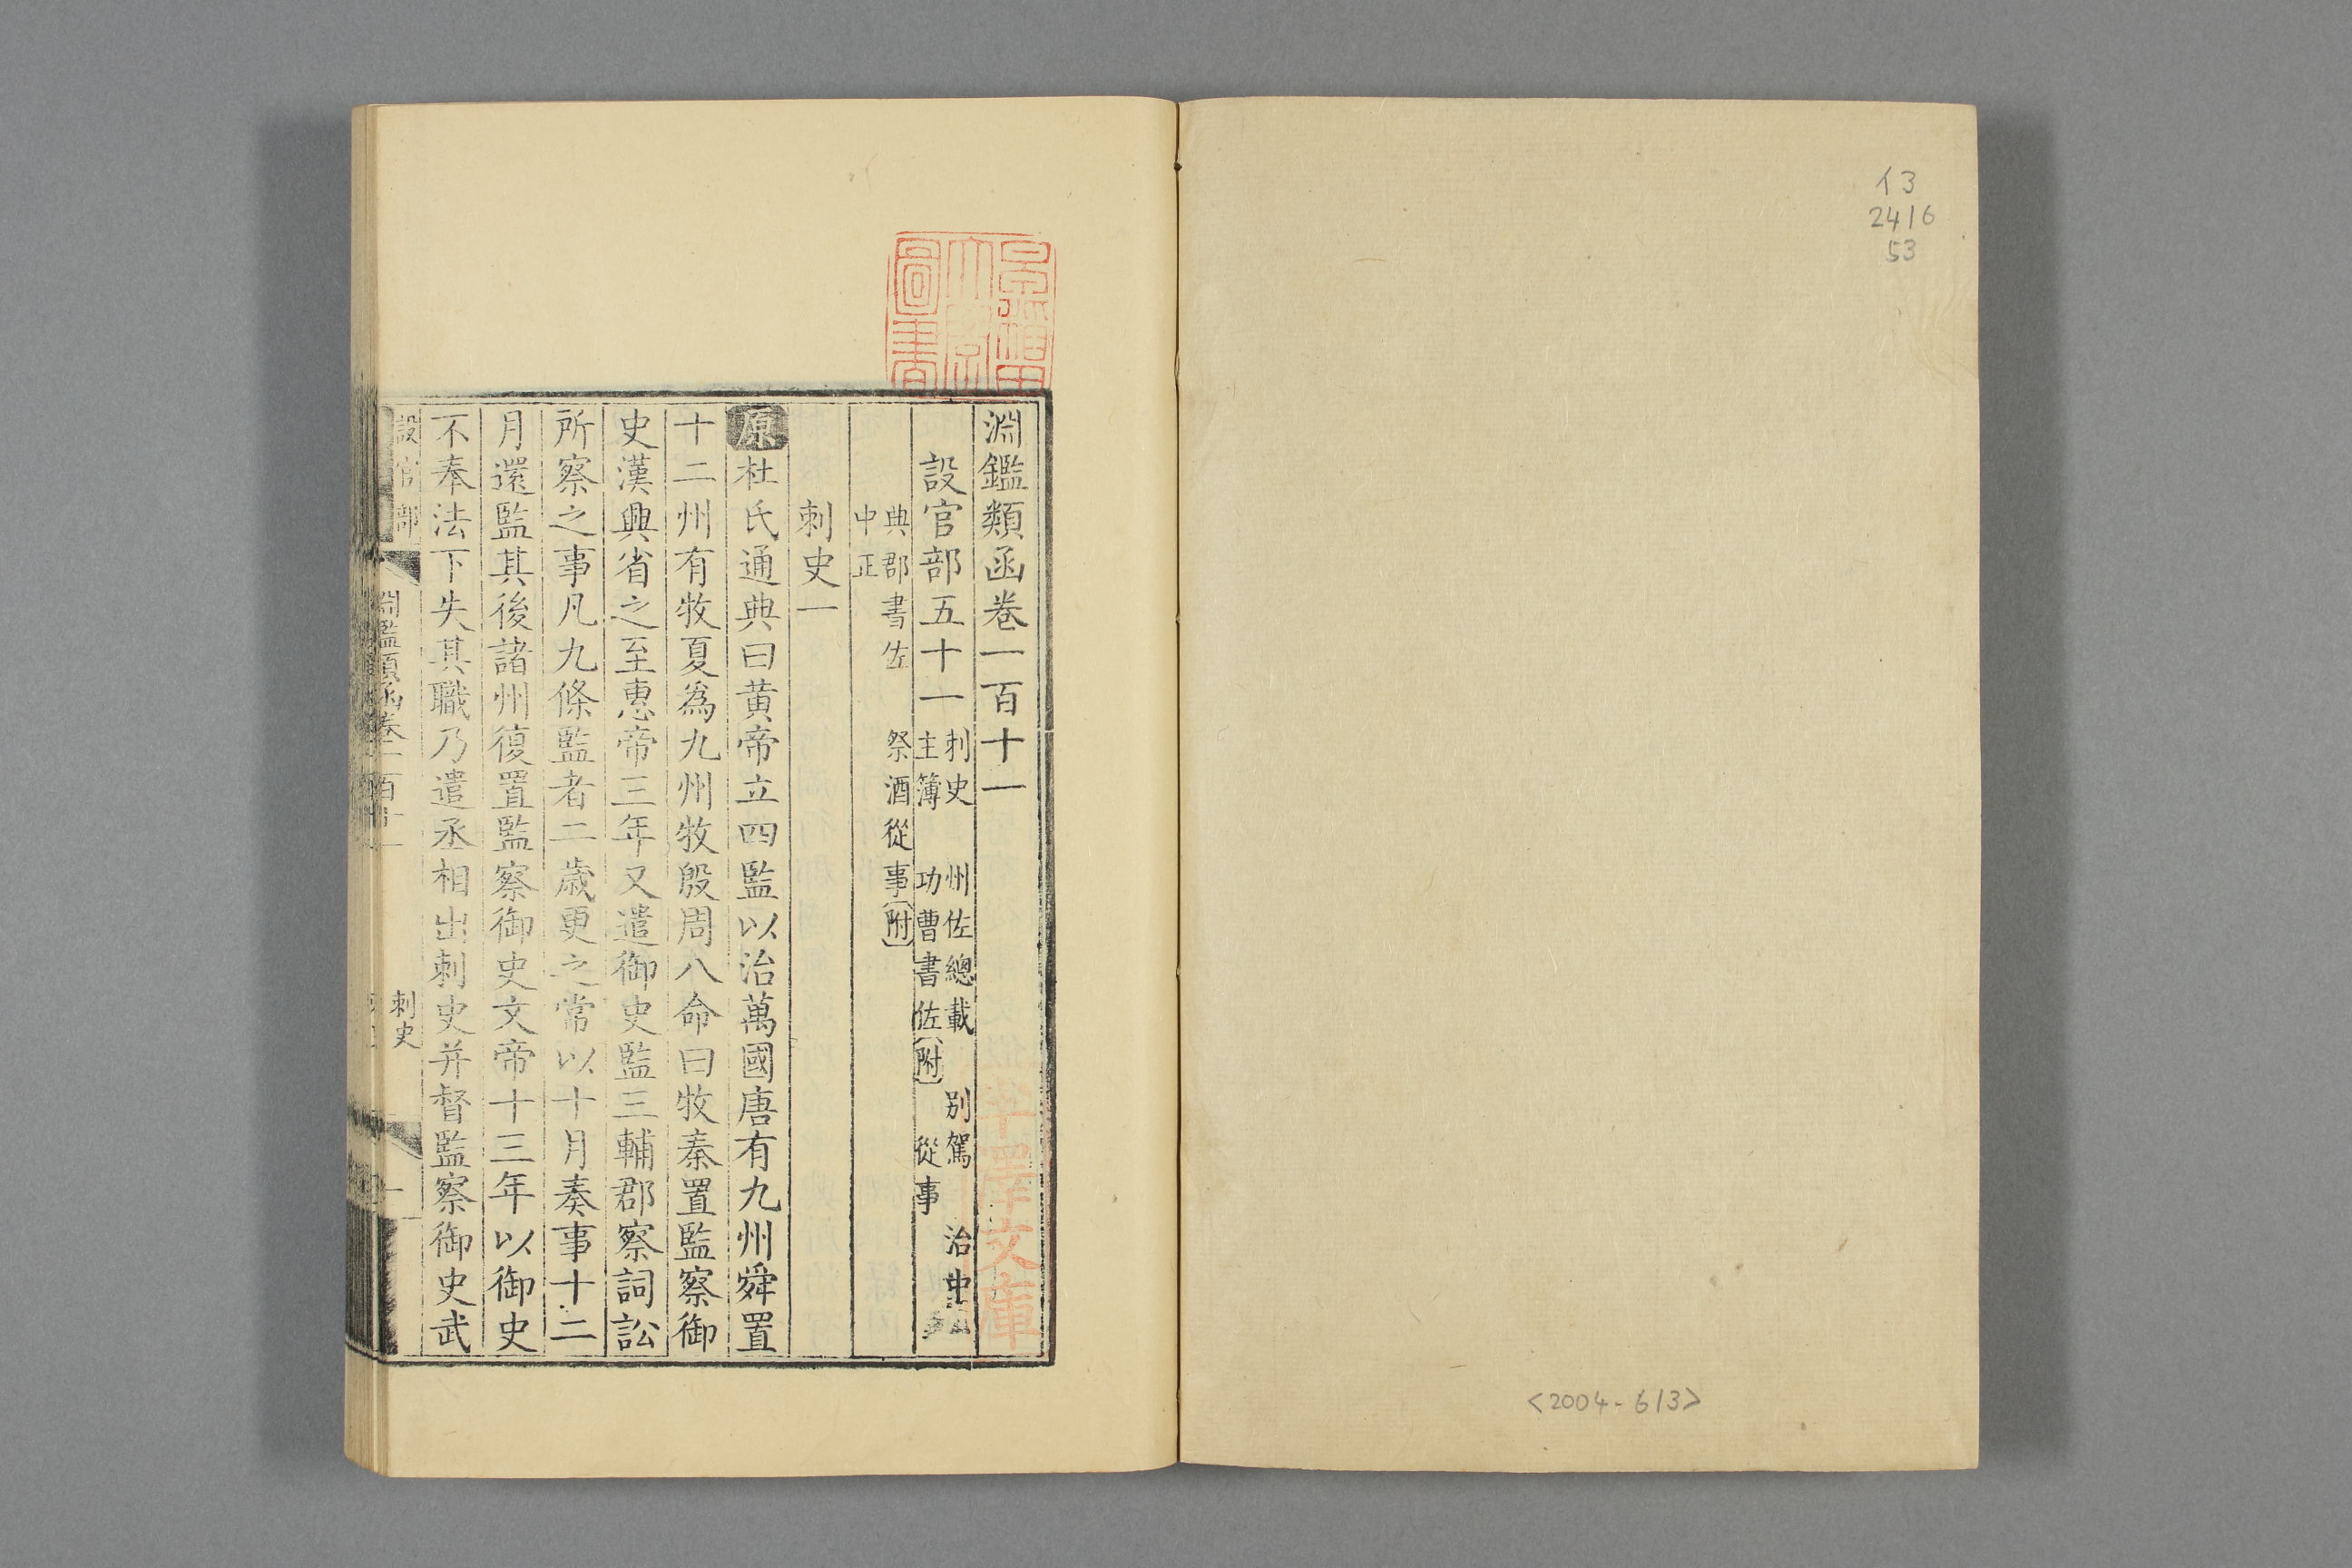 イ3
2416
53
<2004-613>
早稲田
大學
圖書
淵鑑類函卷一百十一
設官部五十一 刺史 州佐總載 別駕 治中
主簿 功曹書佐〔附〕 從事
典郡書佐 祭酒從事〔附〕
中正
半澤文庫
刺史一
原杜氏通典曰黄帝立四監以治萬國唐有九州舜置
十二州有牧夏爲九州牧殷周八命曰牧秦置監察御
史漢興省之至惠帝三年又遣御史監三輔郡察詞訟
所察之事凡九條監者二歲更之常以十月奏事十二
月還監其後諸州復置監察御史文帝十三年以御史
不奉法下失其職乃遣丞相出刺史并督監察御史武
設官部
淵鑑類函卷一百十一
刺史
一